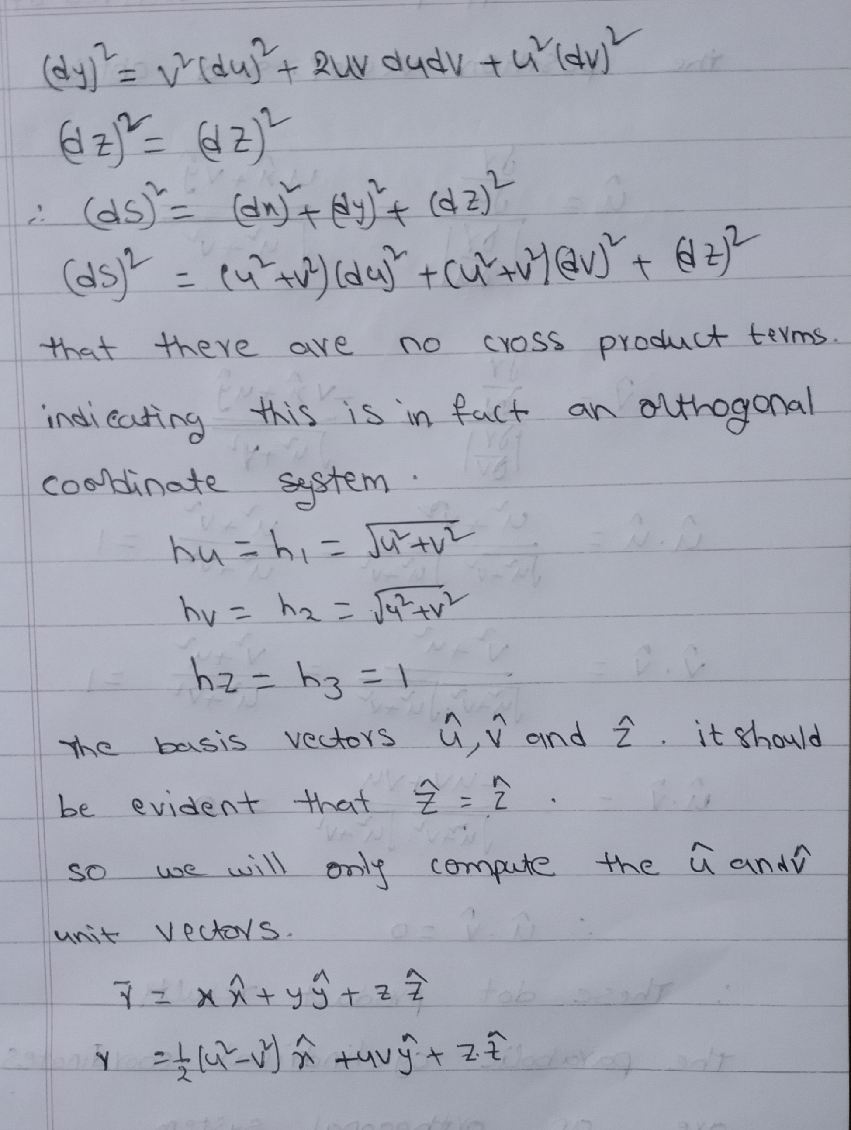 (dy)² = v²(du)² + 2uv dudv + u²(dv)²
(dz)² = (dz)²
∴ (ds)² = (dx)² + (dy)² + (dz)²
(ds)² = (u²+v²)(du)² + (u²+v²)(dv)² + (dz)²
that there are no cross product terms.
indicating this is in fact an orthogonal
coordinate system.
hu = h₁ = √u²+v²
hv = h₂ = √u²+v²
hz = h₃ = 1
The basis vectors û, v̂ and ẑ. it should
be evident that ẑ = ẑ.
so we will only compute the û and v̂
unit vectors.
r̄ = x x̂ + y ŷ + z ẑ
r = ½(u²-v²) x̂ + uv ŷ + z.ẑ